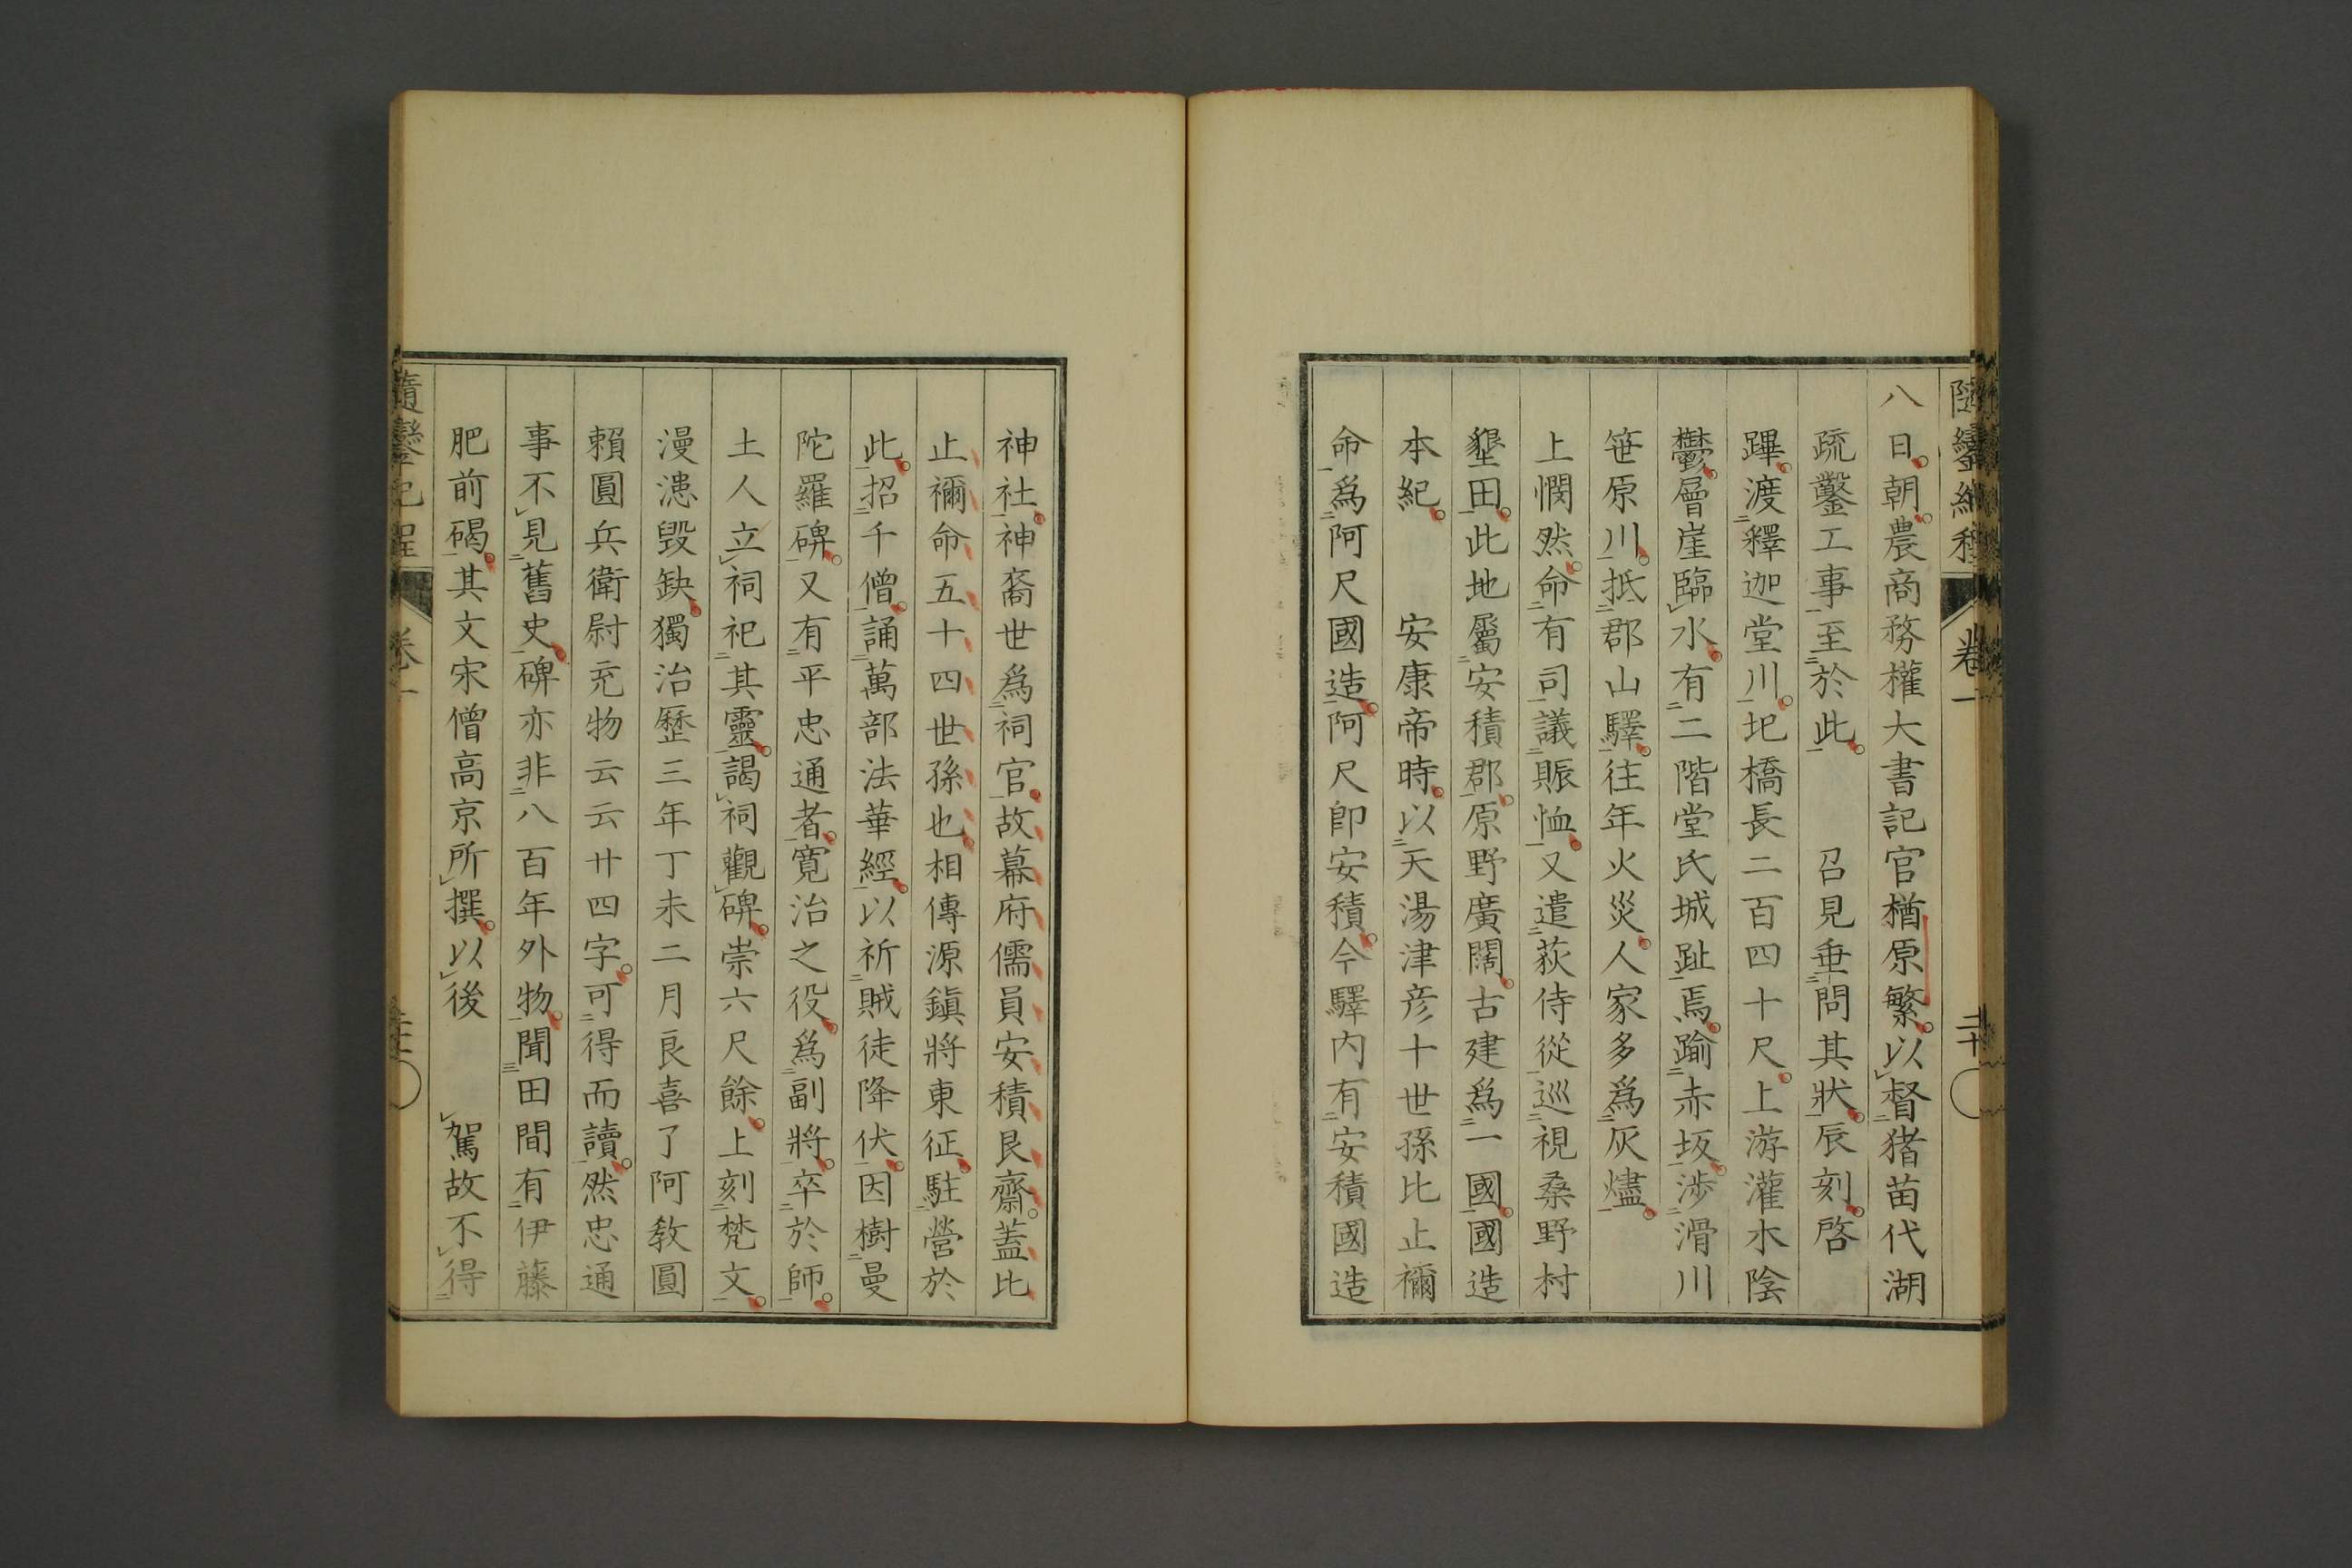 隨鑾紀程 卷一 二十
八日朝農商務權大書記官楢原繁以督猪苗代湖
疏鑿工事至於此 召見垂問其狀辰刻啓
蹕渡釋迦堂川圯橋長二百四十尺上游灌木陰
鬱層崖臨水有二階堂氏城趾焉踰赤坂渉滑川
笹原川抵郡山驛往年火災人家多爲灰燼
上憫然命有司議賑恤又遣荻侍從巡視桑野村
墾田此地屬安積郡原野廣闊古建爲一國國造
本紀 安康帝時以天湯津彦十世孫比止禰
命爲阿尺國造阿尺卽安積今驛內有安積國造
神社神裔世爲祠官故幕府儒員安積艮齋蓋比
止禰命五十四世孫也相傳源鎭將東征駐營於
此招千僧誦萬部法華經以祈賊徒降伏因樹曼
陀羅碑又有平忠通者寬治之役爲副將卒於師
土人立祠祀其靈謁祠觀碑崇六尺餘上刻梵文
漫漶毀缺獨治歷三年丁未二月良喜了阿敎圓
賴圓兵衛尉充物云云廿四字可得而讀然忠通
事不見舊史碑亦非八百年外物聞田間有伊藤
肥前碣其文宋僧高京所撰以後 駕故不得
隨鑾紀程 卷一